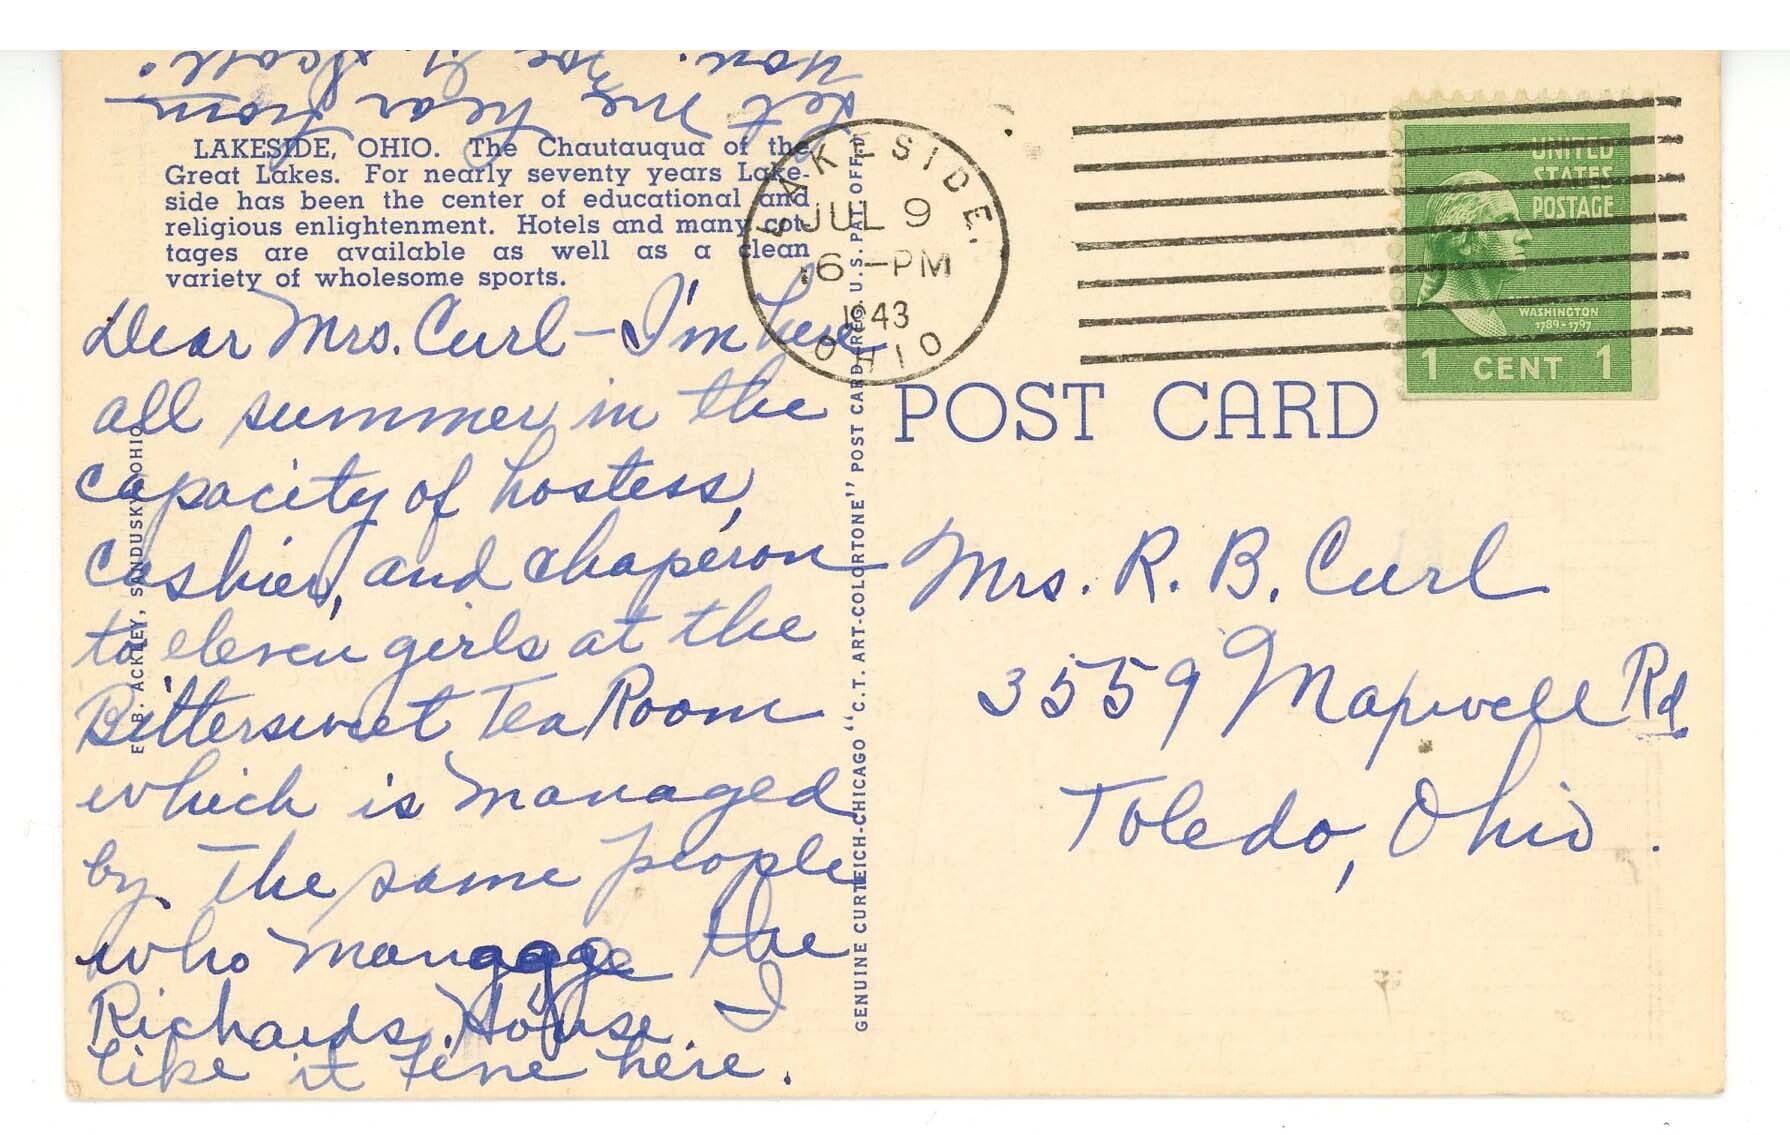 LAKESIDE, OHIO. The Chautauqua of the
Great Lakes. For nearly seventy years Lake-
side has been the center of educational and
religious enlightenment. Hotels and many cot-
tages are available as well as a clean
variety of wholesome sports.
Dear Mrs. Curl — I'm here
all summer in the
capacity of hostess,
cashier, and chaperon
to eleven girls at the
Bittersweet Tea Room
which is managed
by the same people
who manage the
Richards House. I
like it fine here.
Let me hear from
you.
E. B. ACKLEY, SANDUSKY, OHIO
GENUINE CURTEICH-CHICAGO "C.T. ART-COLORTONE" POST CARD (REG. U.S. PAT. OFF.)
LAKESIDE,
JUL 9
6 - PM
1943
OHIO
UNITED
STATES
POSTAGE
WASHINGTON
1789-1797
1 CENT 1
POST CARD
Mrs. R. B. Curl
3559 Mapwell Rd
Toledo, Ohio.